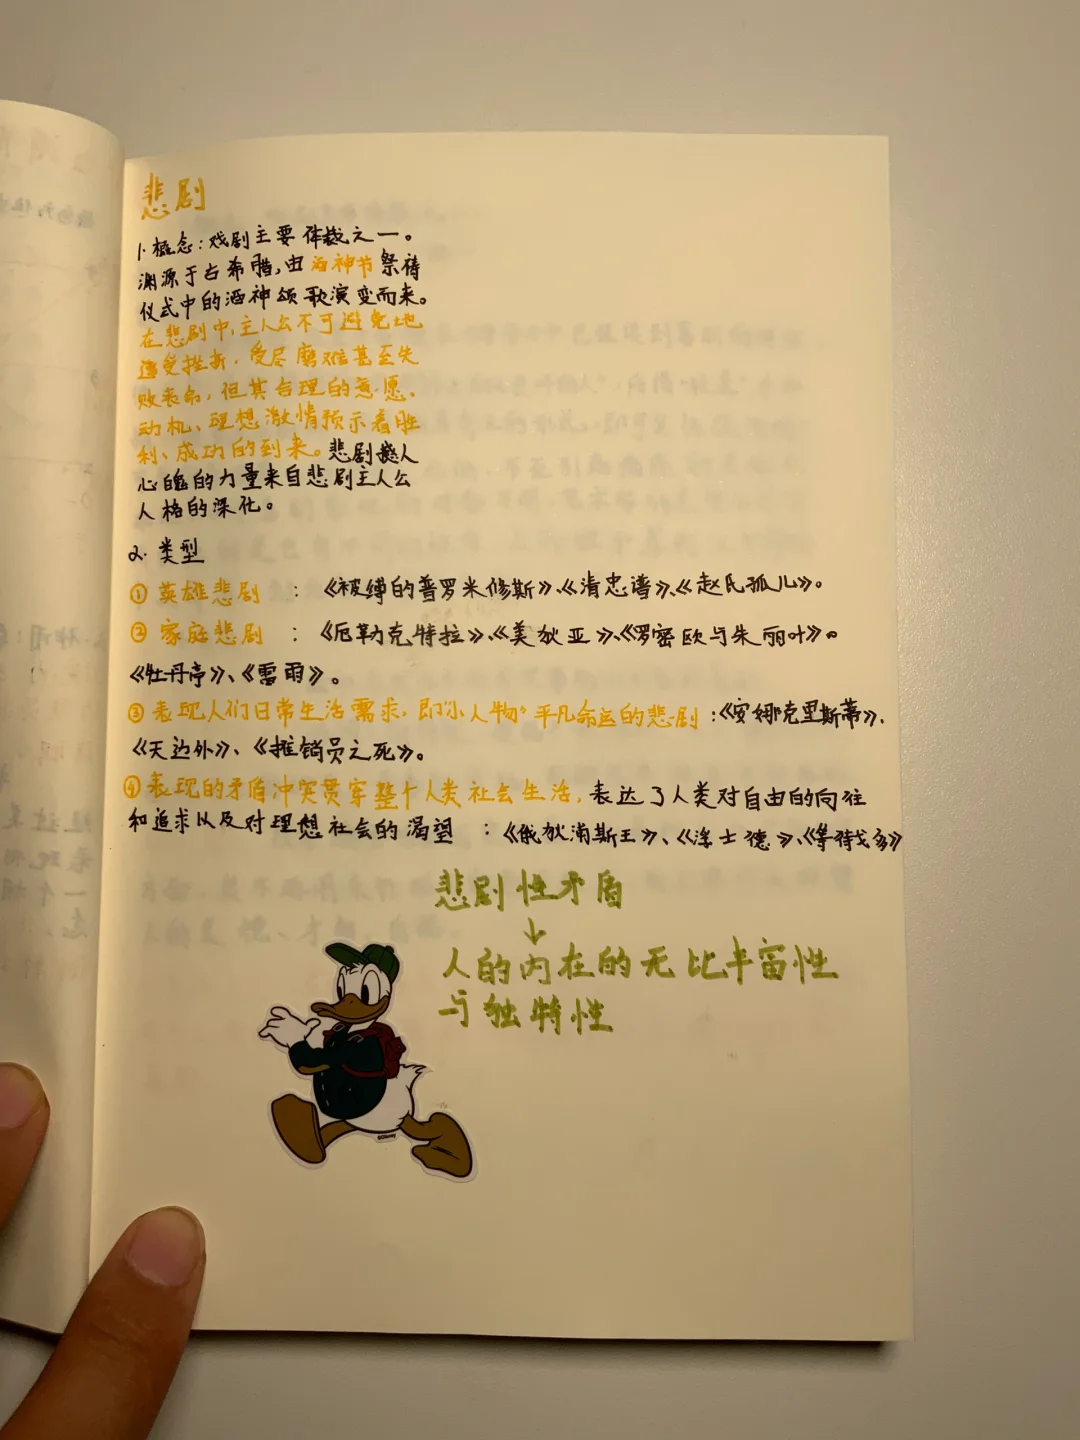 悲剧
1. 概念：戏剧主要体裁之一。
渊源于古希腊,由酒神节祭祷
仪式中的酒神颂歌演变而来。
在悲剧中,主人公不可避免地
遭受挫折,受尽磨难甚至失
败丧命,但其合理的意愿、
动机、理想、激情预示着胜
利、成功的到来。悲剧撼人
心魄的力量来自悲剧主人公
人格的深化。
2. 类型
① 英雄悲剧 : 《被缚的普罗米修斯》、《清忠谱》、《赵氏孤儿》。
② 家庭悲剧 : 《厄勒克特拉》、《美狄亚》、《罗密欧与朱丽叶》。
《牡丹亭》、《雷雨》。
③ 表现人们日常生活需求,即"小人物"平凡命运的悲剧:《安娜克里斯蒂》、
《天边外》、《推销员之死》。
④ 表现的矛盾冲突贯穿整个人类社会生活,表达了人类对自由的向往
和追求以及对理想社会的渴望 : 《俄狄浦斯王》、《浮士德》、《等待戈多》
悲剧性矛盾
↓
人的内在的无比丰富性
与独特性
©Disney